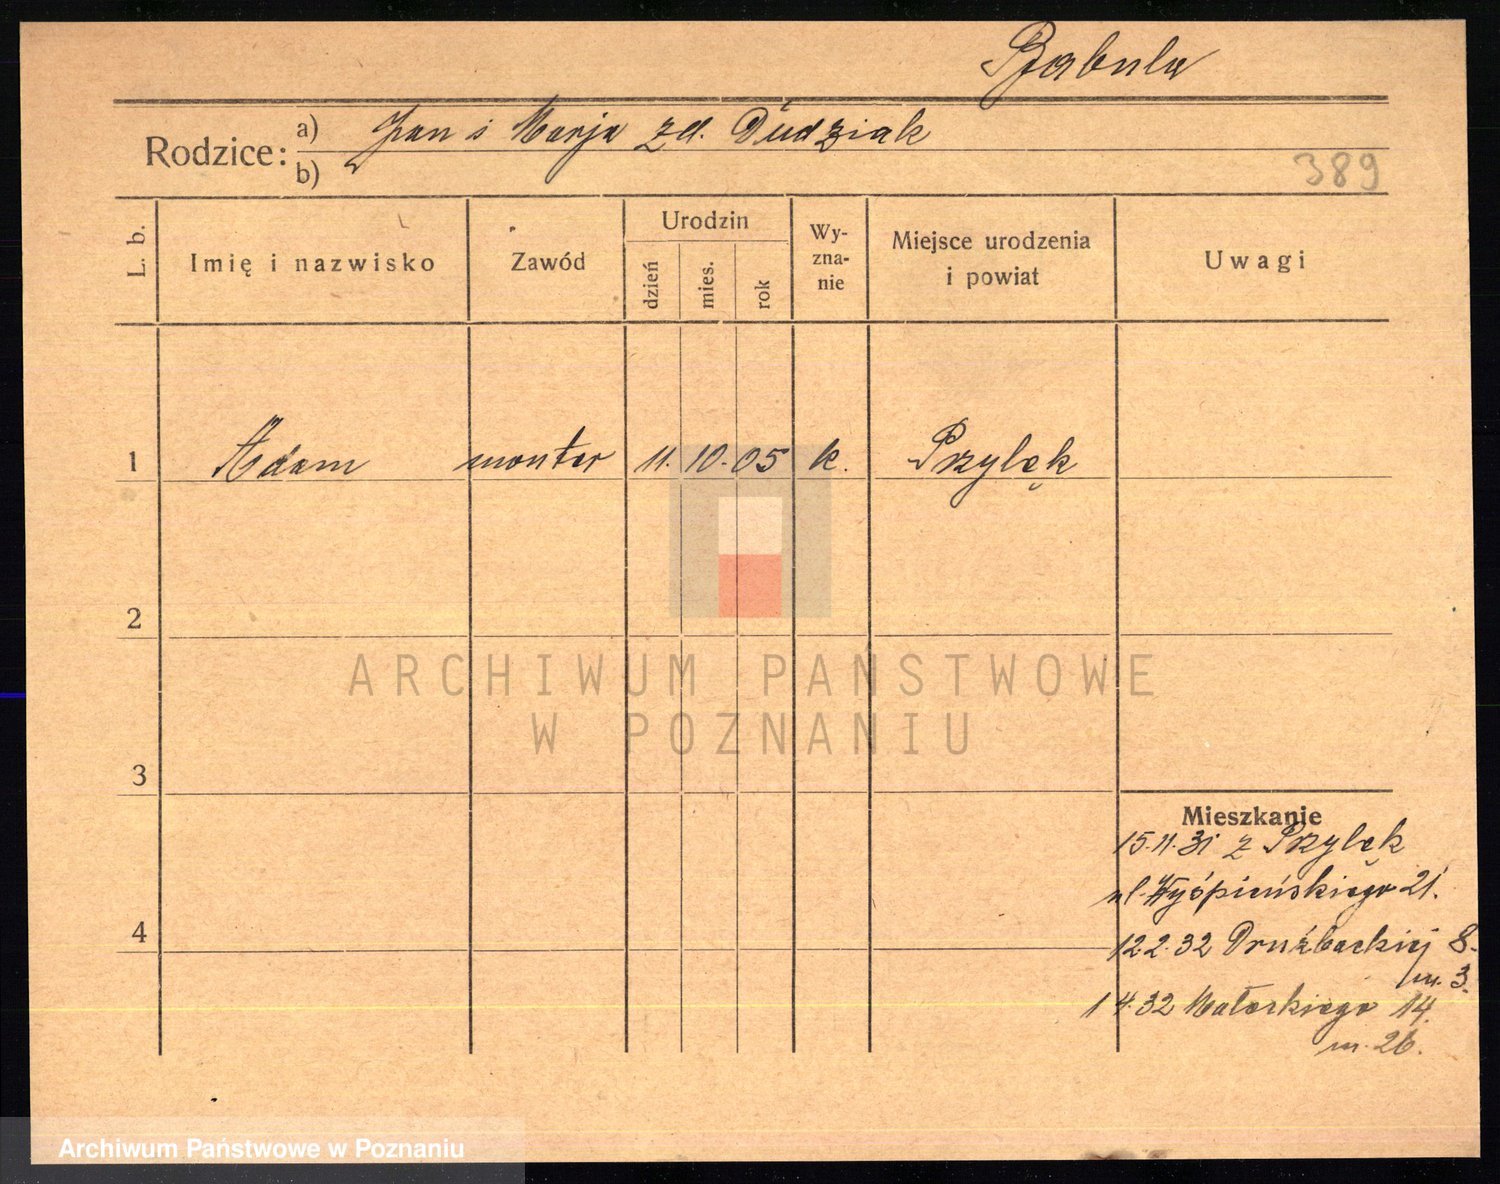 Babula
Rodzice: a) Jan i Marja zd. Dudziak
b)
389
L. b.
Imię i nazwisko
Zawód
Urodzin
dzień
mies.
rok
Wy-
zna-
nie
Miejsce urodzenia
i powiat
Uwagi
1 Adam monter 11. 10. 05 k. Przylęk
2
3
4
Mieszkanie
15.11.31 z Przylęk
ul. Wyśpieńskiego 21.
12.2.32 Drużbackiej 8.
m. 3.
1 4.32 14.
m. 26.
ARCHIWUM PAŃSTWOWE
W POZNANIU
Archiwum Państwowe w Poznaniu